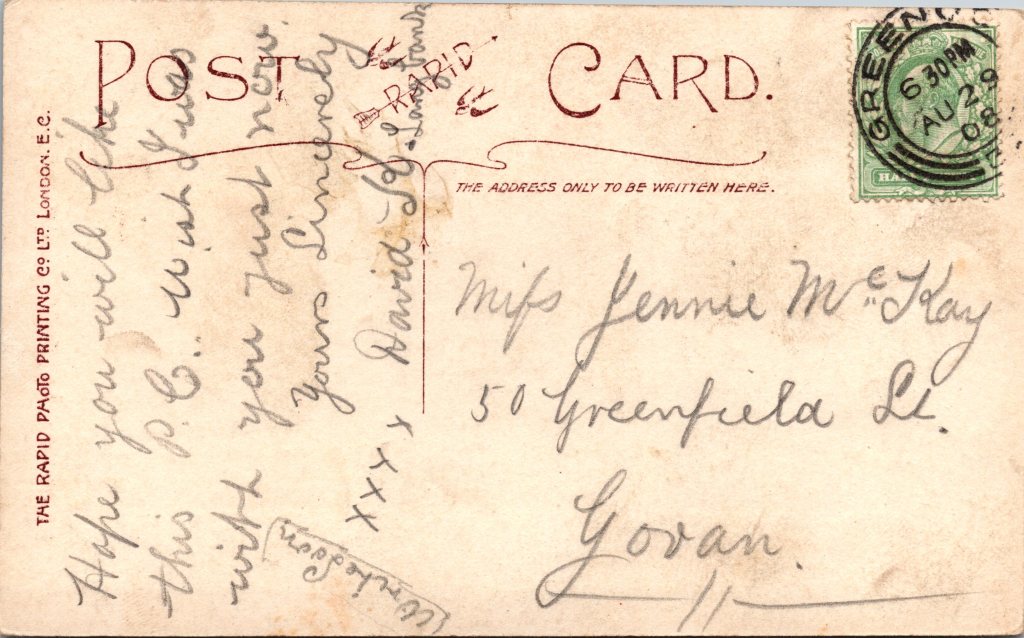 POST CARD.
RAPID
THE ADDRESS ONLY TO BE WRITTEN HERE.
THE RAPID PHOTO PRINTING CO LTD LONDON. E.C.
GREENOCK
6 30 PM
AU 29
08
Hope you will like
this P.C. wish I was
with you just now
Yours Sincerely
David
Langbank
x x x x
Write Soon
Miss Jennie McKay
50 Greenfield St.
Govan.